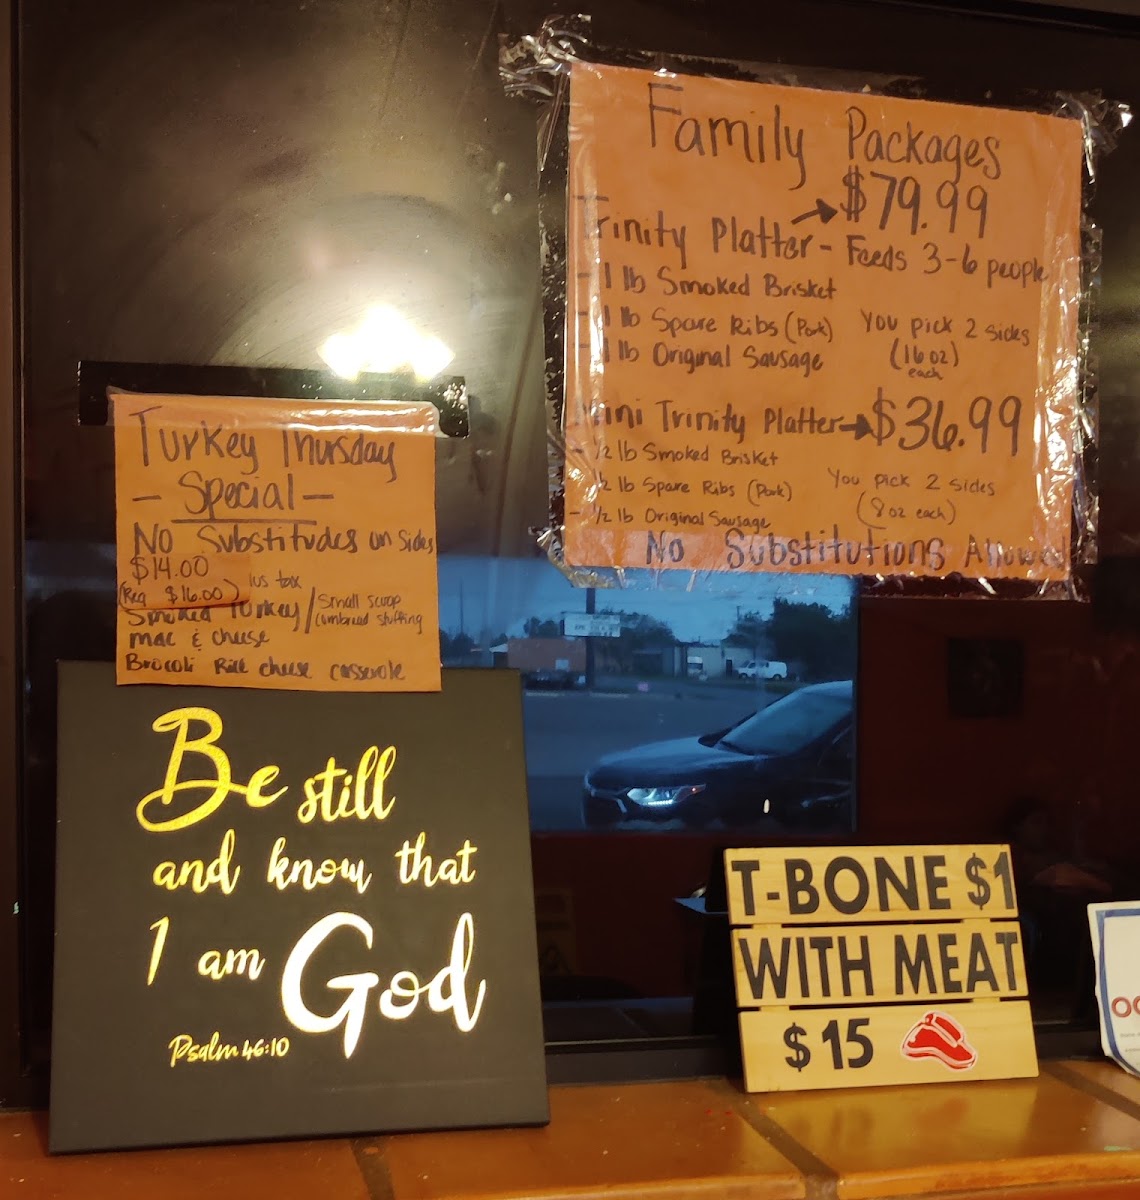 Family Packages
$79.99
Trinity Platter - Feeds 3-6 people
- 1 lb Smoked Brisket
- 1 lb Spare Ribs (Pork)
- 1 lb Original Sausage
You pick 2 sides
(16 oz)
each
Mini Trinity Platter $36.99
- 1/2 lb Smoked Brisket
1/2 lb Spare Ribs (Pork)
- 1/2 lb Original Sausage
You pick 2 sides
(8 oz each)
No Substitutions Allowed
Turkey Thursday
- Special -
NO Substitudes on sides
$14.00
(Reg $16.00) lus tax
Smoked Turkey / Small scoop
cornbread stuffing
mac & cheese
Brocoli Rice cheese casserole
Be still
and know that
I am God
Psalm 46:10
T-BONE $1
WITH MEAT
$15